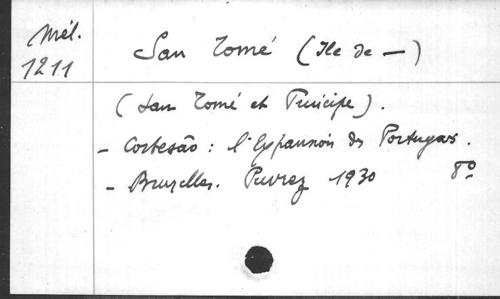 Mél.
1211
San Tomé (Ile de —)
(San Tomé et Principe).
- Cortesão: l'Expansion des Portugais.
- Bruxelles. Puvrez 1930 8º